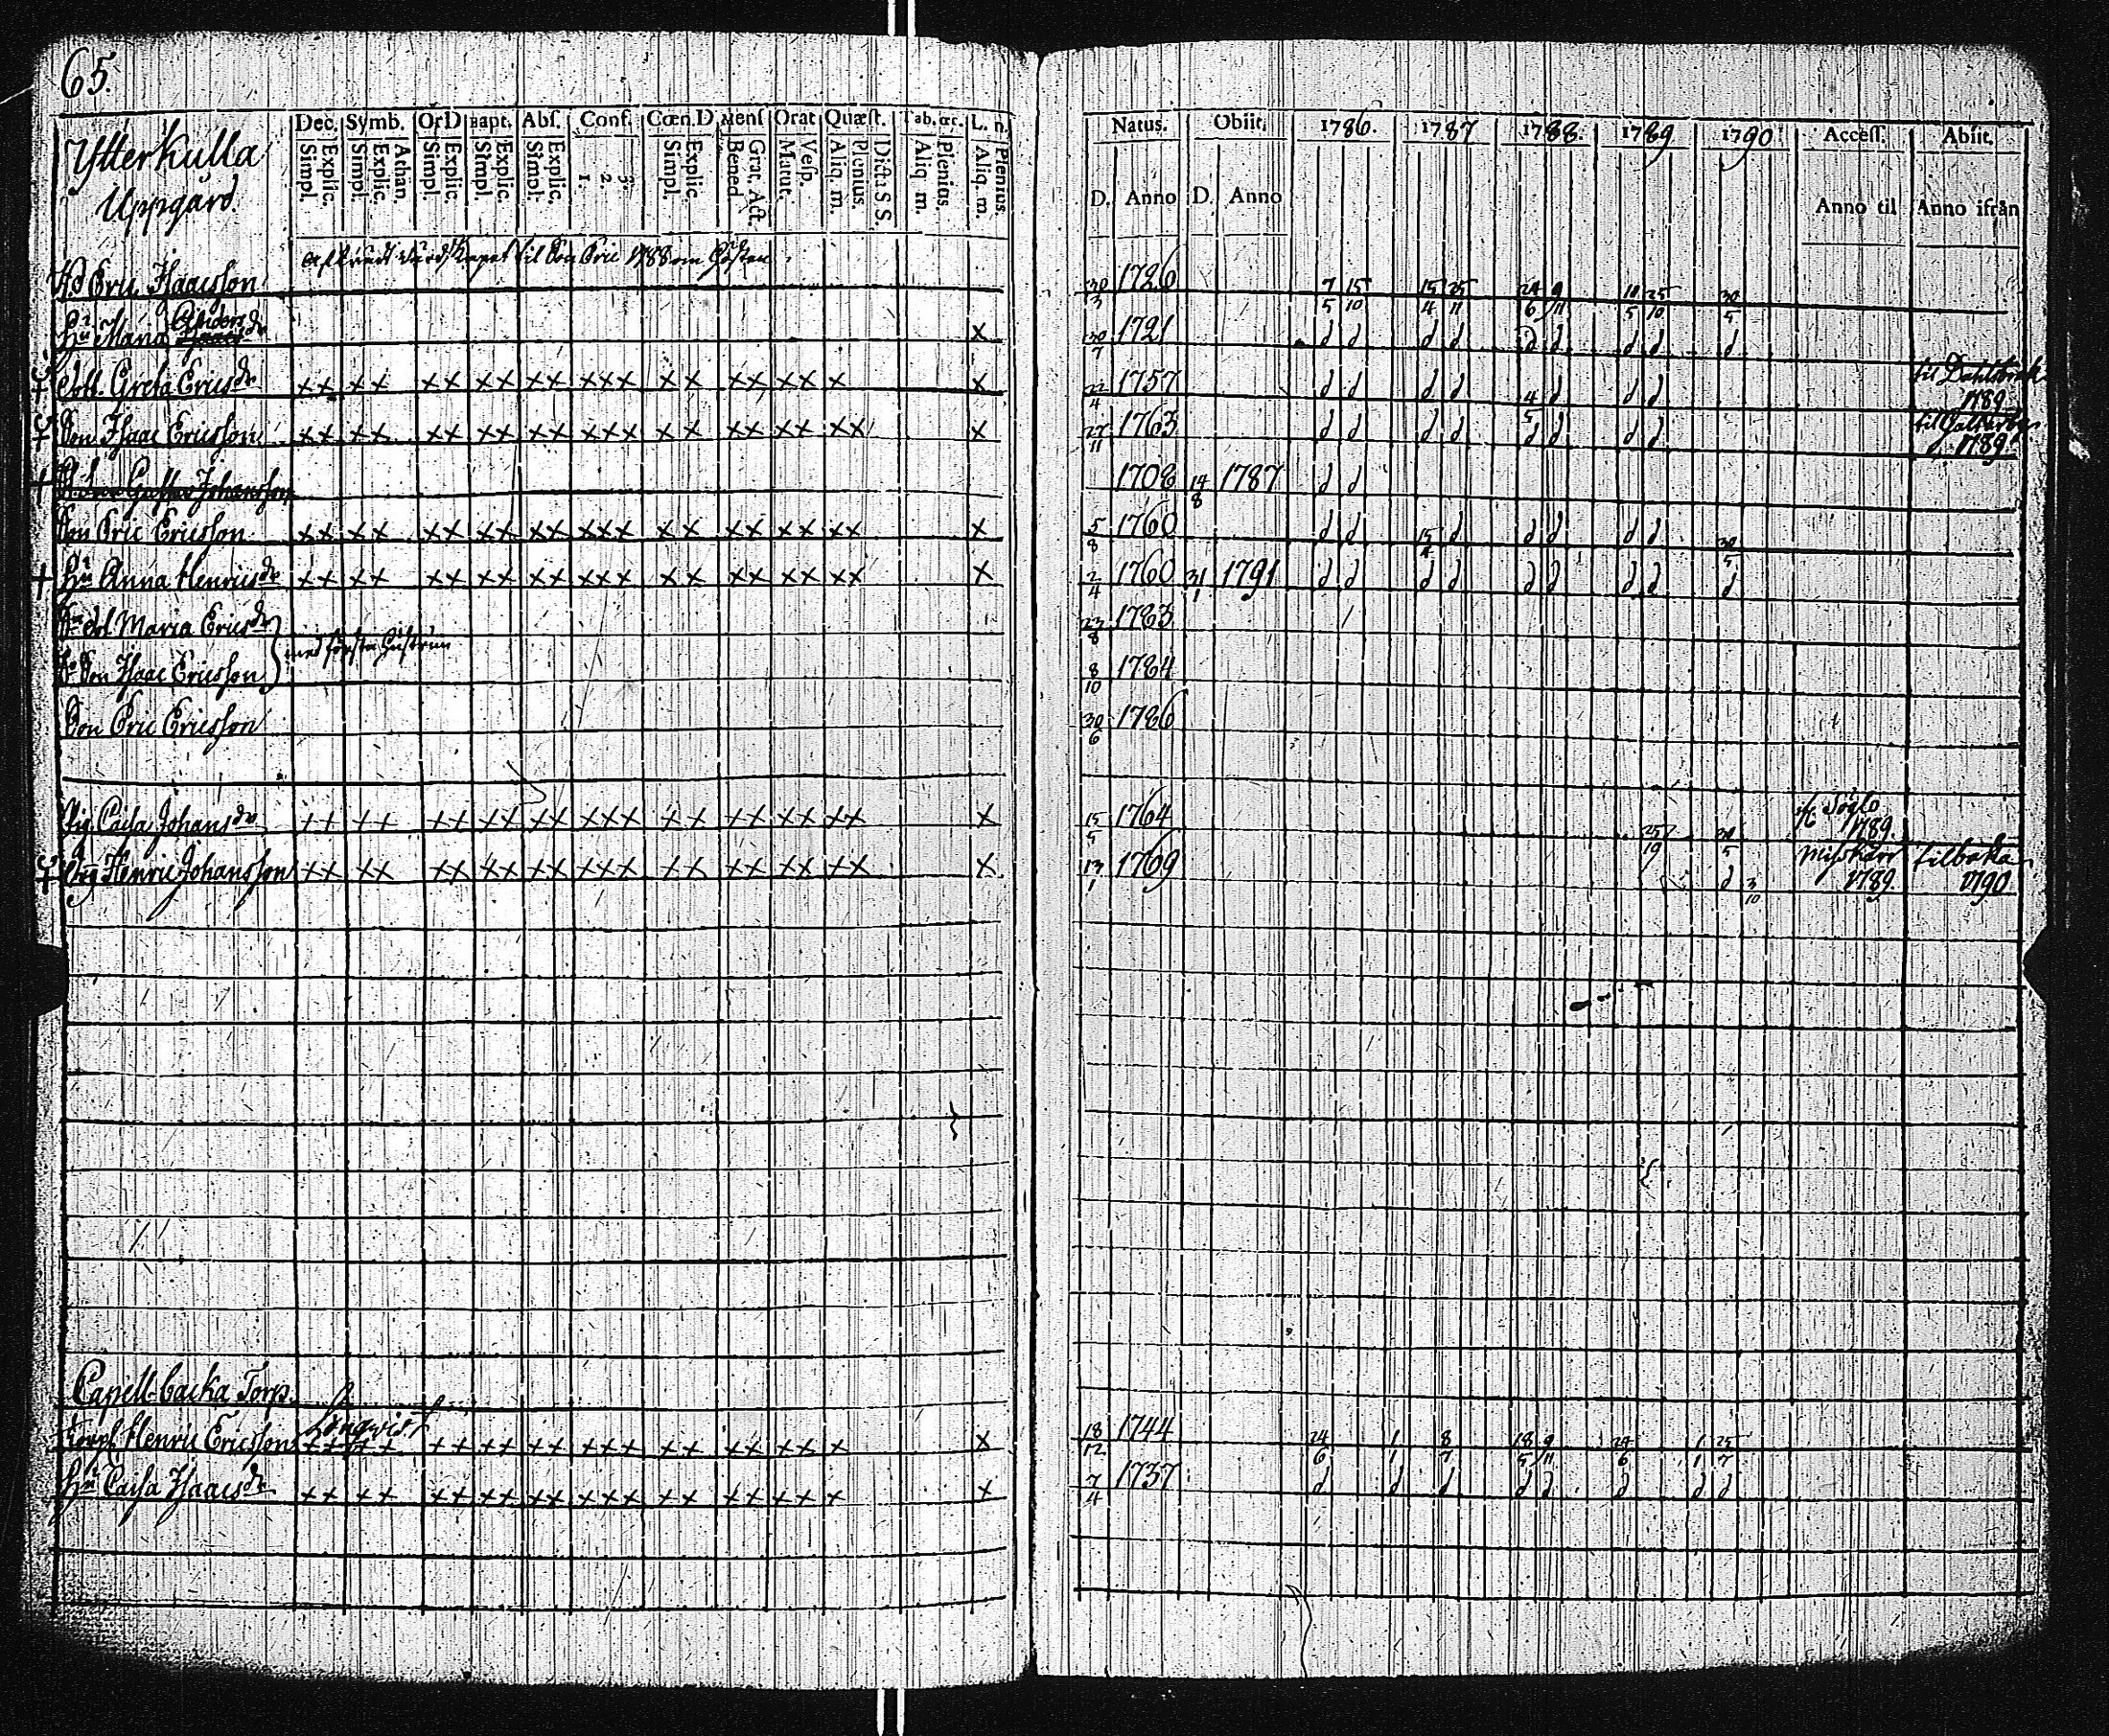 65.
Ytterkulla
Uppgård.
Dec. Symb. Or D Bapt. Abſ. Conf. Cœn. D Menſ Orat Quæſt. Tab. œc. L. n.
Simpl. Explic. Simpl. Explic. Athan. Simpl. Explic. Simpl. Explic. Simpl. Explic. 1. 2. 3. Simpl. Explic. Bened. Grat. Act. Matut. Veſp. Aliq. m. Plenius. Dicta S S. Aliq. m. Plenius. Aliq. m. Plenius.
Natus. Obiit. 1786. 1787 1788. 1789 1790 Acceſſ. Abiit.
D. Anno D. Anno Anno til Anno ifrån
til Son Eric 1788 om hösten.
Eric Isaacsson 30/3 1726 7/5 15/10 15/4 25/11 24/6 9/11 11/5 25/10 30/5
Hu Maria Anders dr x 30/7 1721 d d d d d d d d d
Dott. Greta Ericsdr xx xx xx xx xx xxx xx xx xx x x 22/4 1757 d d d d 4/5 d d d til 1789
Son Isaac Ericsson xx xx xx xx xx xxx xx xx xx xx x 27/11 1763 d d d d d d d d til 1789
Johansson 1708 14/8 1787 d d
Son Eric Ericsson xx xx xx xx xx xxx xx xx xx xx x 5/8 1760 d d 15/4 d d d d d 30/5
Hu Anna Henricsdr xx xx xx xx xx xxx xx xx xx xx x 2/4 1760 31/1 1791 d d d d d d d d d
dot Maria Ericsdr 23/8 1783
med första hustrun
Son Isaac Ericsson 8/10 1784
Son Eric Ericsson 30/6 1786
Pig. Caisa Johansdr xx xx xx xx xx xxx xx xx xx xx x 15/5 1764 25/10 30/5 1789.
Drg Henric Johansson xx xx xx xx xx xxx xx xx xx xx x 13/1 1769 d 3/10 Misskärr 1789. tilbaka 1790
Capell-backa Torp.
Lingvist
Torp. Henric Ericsson xx xx xx xx xx xxx xx xx xx x x 18/12 1744 24/6 1/1 8/7 18/5 9/11 24/6 1/1 25/7
Hu Caisa Isaacsdr xx xx xx xx xx xxx xx xx xx x x 7/4 1737 d d d d d d d d